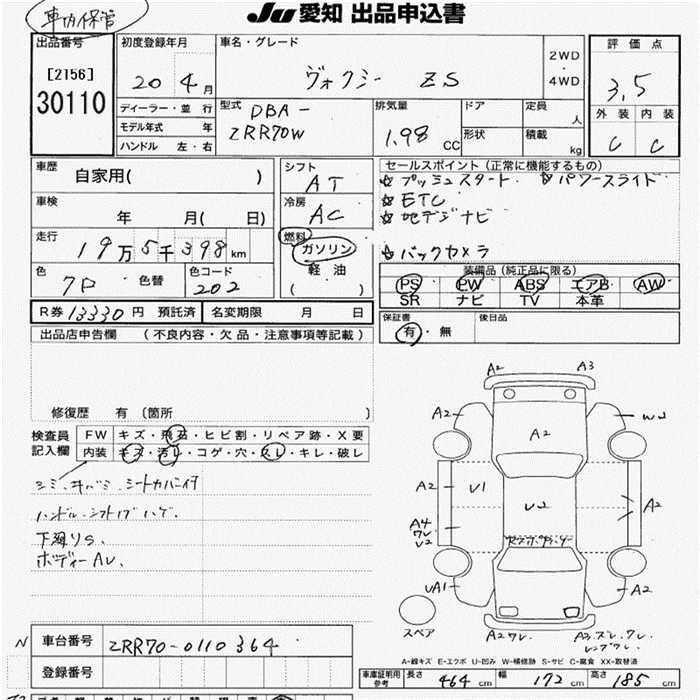 車内保管
Ju 愛知 出品申込書
出品番号
[2156]
30110
初度登録年月
20年4月
ディーラー・並 行
モデル年式 年
ハンドル 左・右
車名・グレード
ヴォクシー ZS
2WD
・
4WD
評価点
3.5
外装 内装
C C
型式
DBA-
ZRR70W
排気量
1.98 CC
ドア
形状
定員
人
積載
kg
車歴
自家用( )
車検
年 月( 日)
走行
19万5千398km
色
色替
色コード
202
シフト
AT
冷房
AC
燃料
ガソリン
軽油
( )
セールスポイント (正常に機能するもの)
☆ プッシュスタート ☆ パワースライド
☆ ETC
☆ 地デジナビ
☆ バックカメラ
装備品 (純正品に限る)
PS PW ABS エアB AW
SR ナビ TV 本革
R券 13330 円 預託済
名変期限 月 日
保証書
有・無
後日品
出品店申告欄 (不良内容・欠品・注意事項等記載)
修復歴 有 〔箇所 〕
検査員
記入欄
FW キズ・飛石・ヒビ割・リペア跡・X要
内装 キズ・汚レ・コゲ・穴・スレ・キレ・破レ
シミ、キバミ、シートカバー付
ハンドル、シフトノブ ハゲ、
下廻りS、
ボディーAU、
A2 A3
A2 A2 W2
A2 U1 U2 A2
A4
ワレ
U2
UA1 A2
スペア
A2ワレ
A3、スレ、ワレ
A-線キズ E-エクボ U-凹み W-補修跡 S-サビ C-腐食 XX-取替済
車台番号 ZRR70-0110364
登録番号
車庫証明用
参考
長さ 464 cm 幅 172 cm 高さ 185 cm